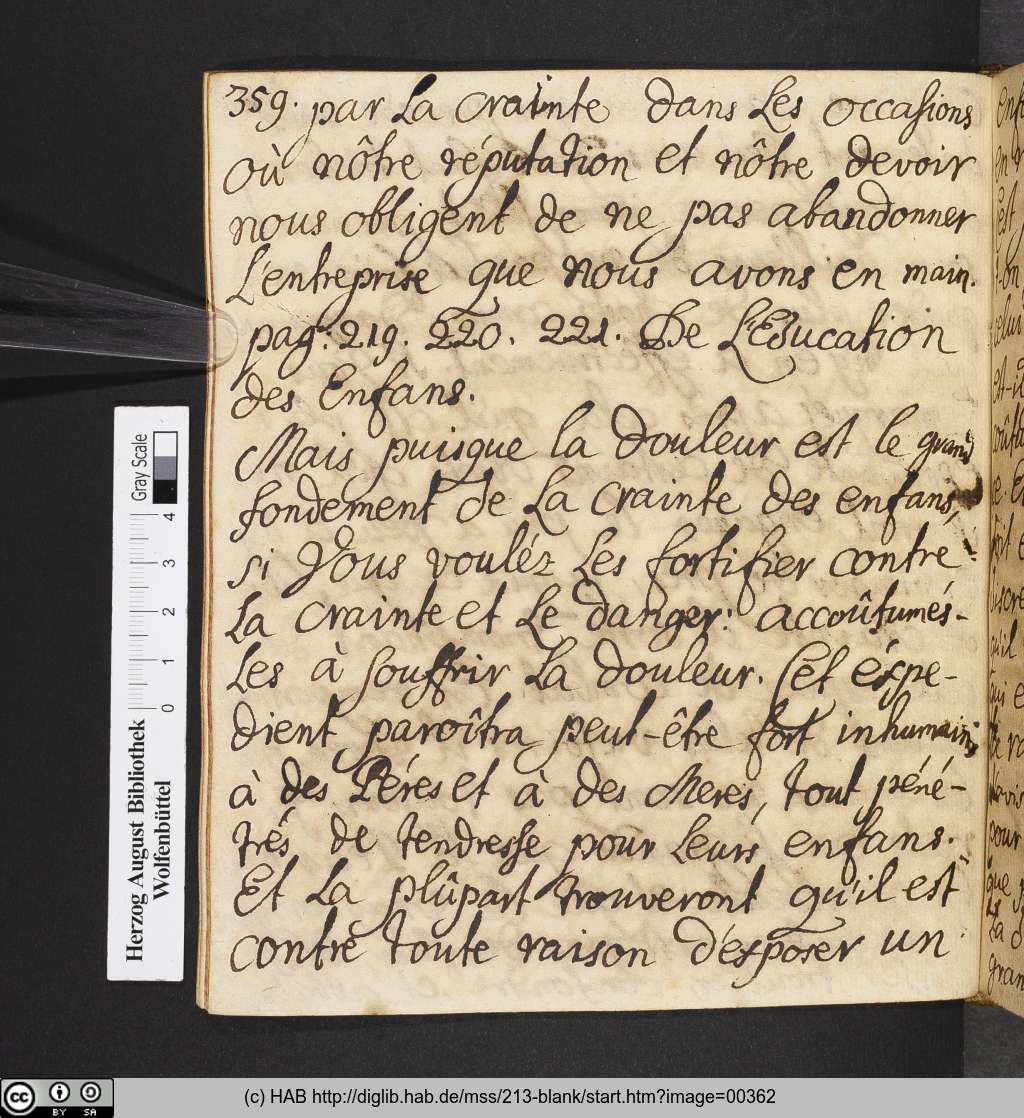 359. par La crainte dans Les occasions
où nôtre réputation et nôtre devoir
nous obligent de ne pas abandonner
L'entreprise que nous avons en main.
pag: 219. 220. 221. De L'Education
des Enfans.
Mais puisque la douleur est le grand
fondement de La crainte des enfans,
si Vous vouléz Les fortifier contre
La crainte et Le danger: accoûtumés-
Les à souffrir La douleur. Cet éxpe-
dient paroîtra peut-être fort inhumain
à des Péres et à des Meres, tout péné-
trés de tendresse pour Leurs enfans.
Et La plûpart trouveront qu'il est
contre toute raison d'exposer un
Herzog August Bibliothek
Wolfenbüttel
0 1 2 3 4
Gray Scale
cc BY SA
(c) HAB http://diglib.hab.de/mss/213-blank/start.htm?image=00362